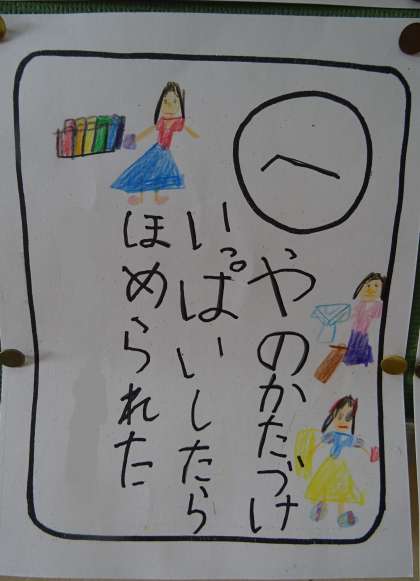 へ
やのかたづけ
いっぱいしたら
ほめられた